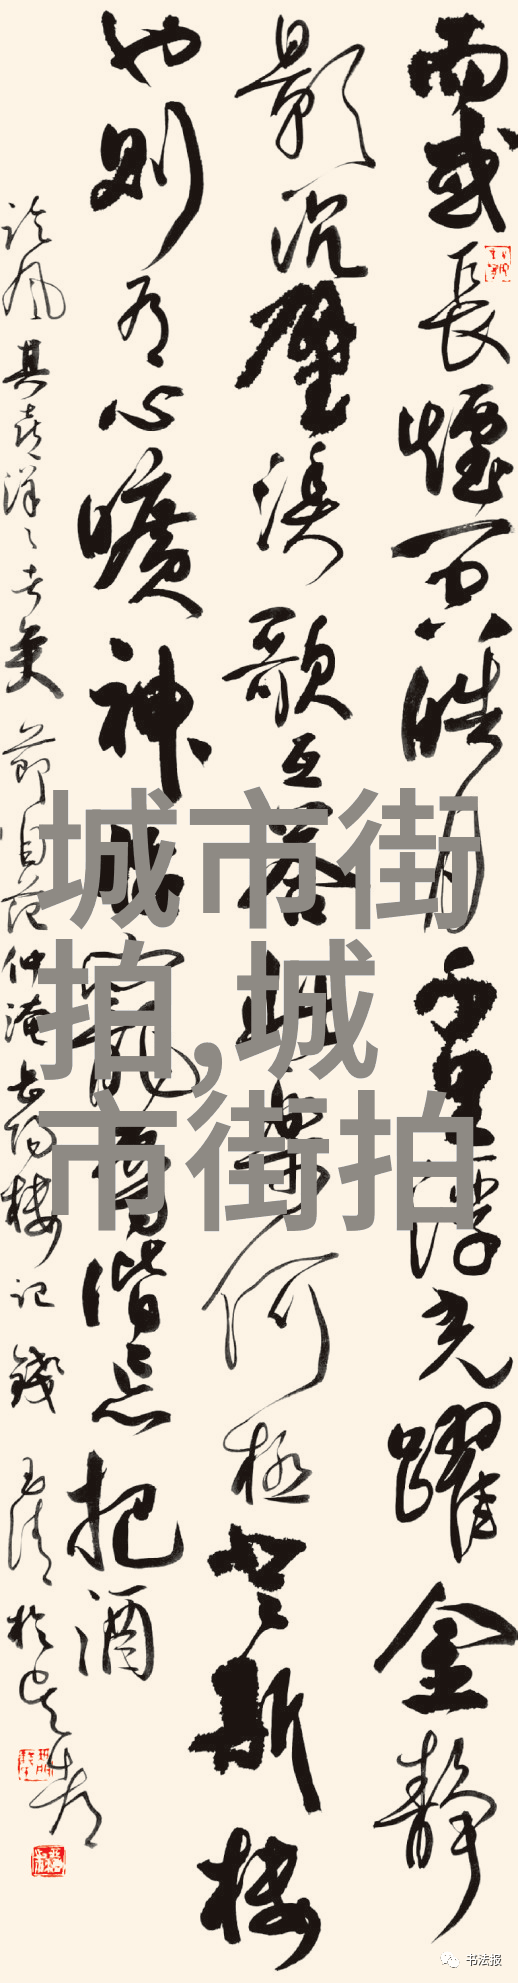 而或長煙一空皓月千里浮光躍金靜
影沉璧漁歌互答此樂何極登斯樓
也則有心曠神怡寵辱偕忘把酒
临风其喜洋々者矣 節自范仲淹岳陽樓記 錢玉清於
城市街
拍,城
市街拍
书法报